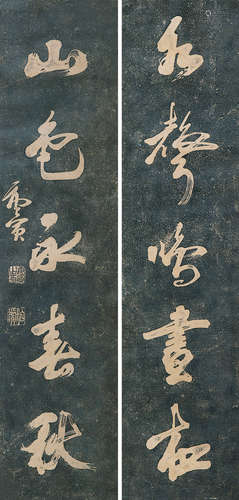 水聲鳴晝夜
山色永春秋